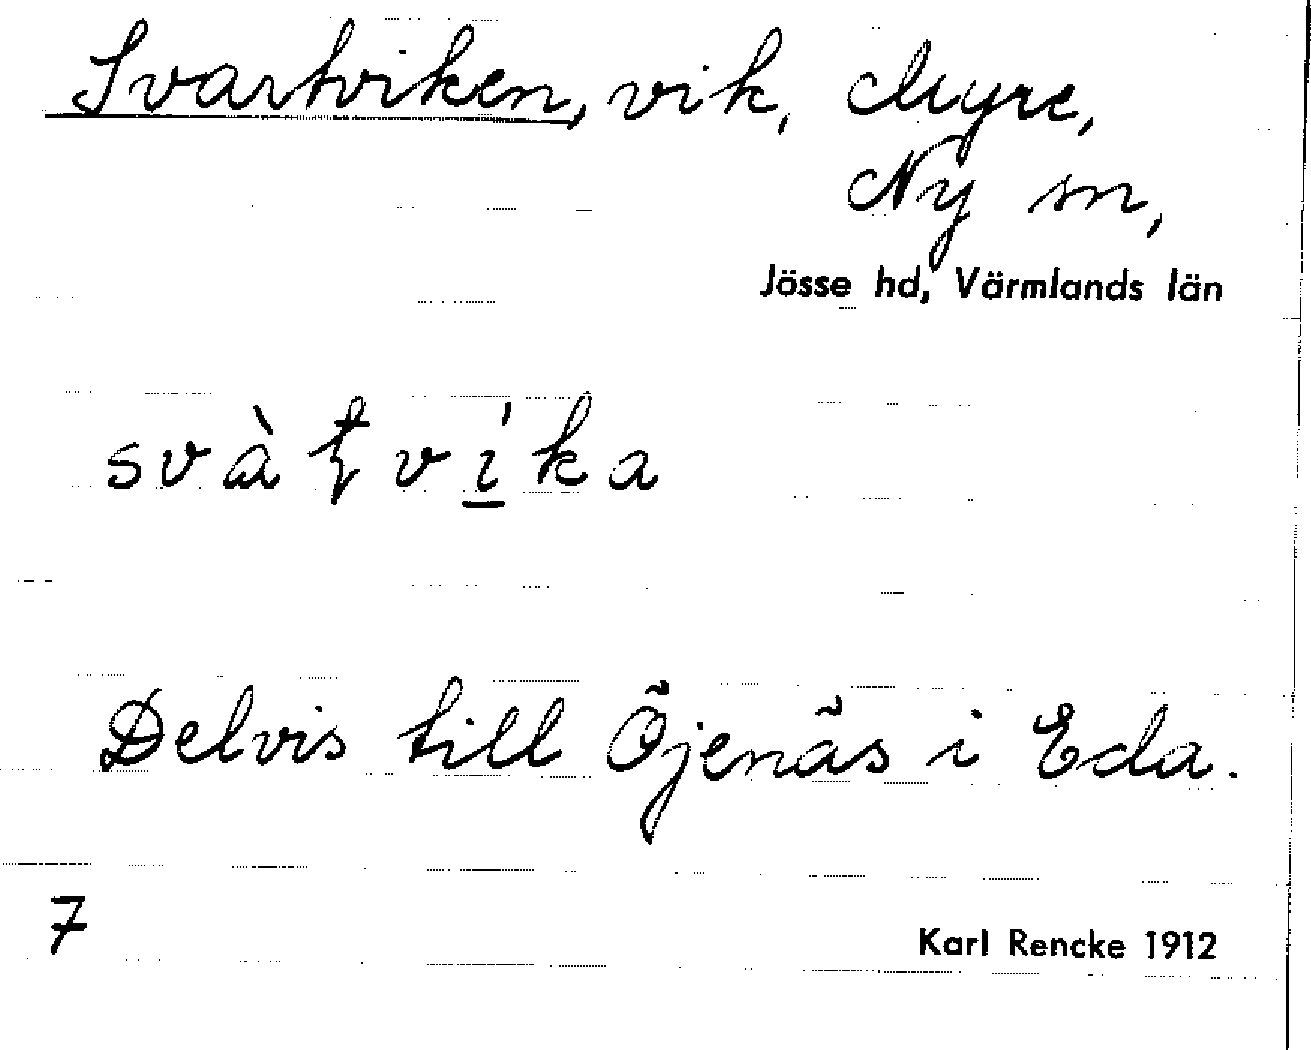 Svartviken, vik, Myre,
Ny sn,
Jösse hd, Värmlands län
svàʈví̲ka
Delvis till Öjenäs i Eda.
7
Karl Rencke 1912